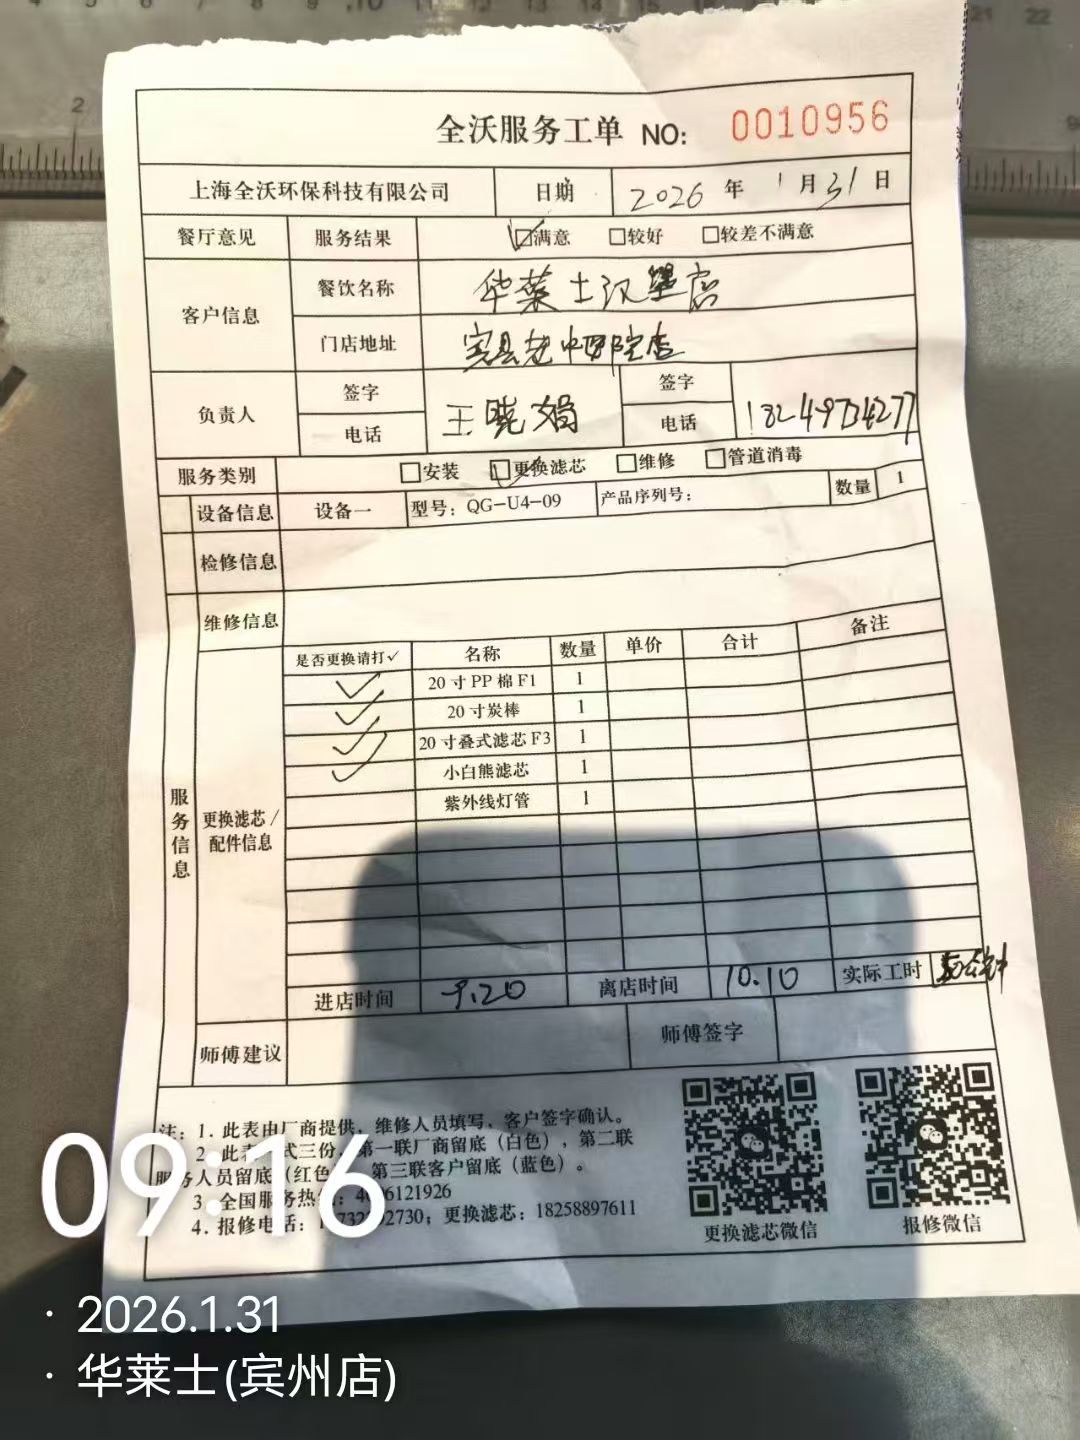 全沃服务工单 NO: 0010956
上海全沃环保科技有限公司 日期 2026 年 1 月 31 日
餐厅意见 服务结果 ☑满意 □较好 □较差不满意
客户信息 餐饮名称 华莱士汉堡店
门店地址 宾县老中医院店
负责人 签字 王晓娟 签字
电话 电话 18249734277
服务类别 □安装 ☑更换滤芯 □维修 □管道消毒
设备信息 设备一 型号：QG-U4-09 产品序列号： 数量 1
检修信息
维修信息
是否更换请打✓ 名称 数量 单价 合计 备注
✓ 20寸PP棉F1 1
✓ 20寸炭棒 1
✓ 20寸叠式滤芯F3 1
✓ 小白熊滤芯 1
紫外线灯管 1
服务信息
更换滤芯/
配件信息
进店时间 9.20 离店时间 10.10 实际工时
师傅建议 师傅签字
注：1. 此表由厂商提供，维修人员填写，客户签字确认。
2. 此表 式三份，第一联厂商留底（白色），第二联
服务人员留底（红色 第三联客户留底（蓝色）。
3. 全国服务热线： 6121926
4. 报修电话： 2730；更换滤芯：18258897611
更换滤芯微信 报修微信
09:16
· 2026.1.31
· 华莱士(宾州店)